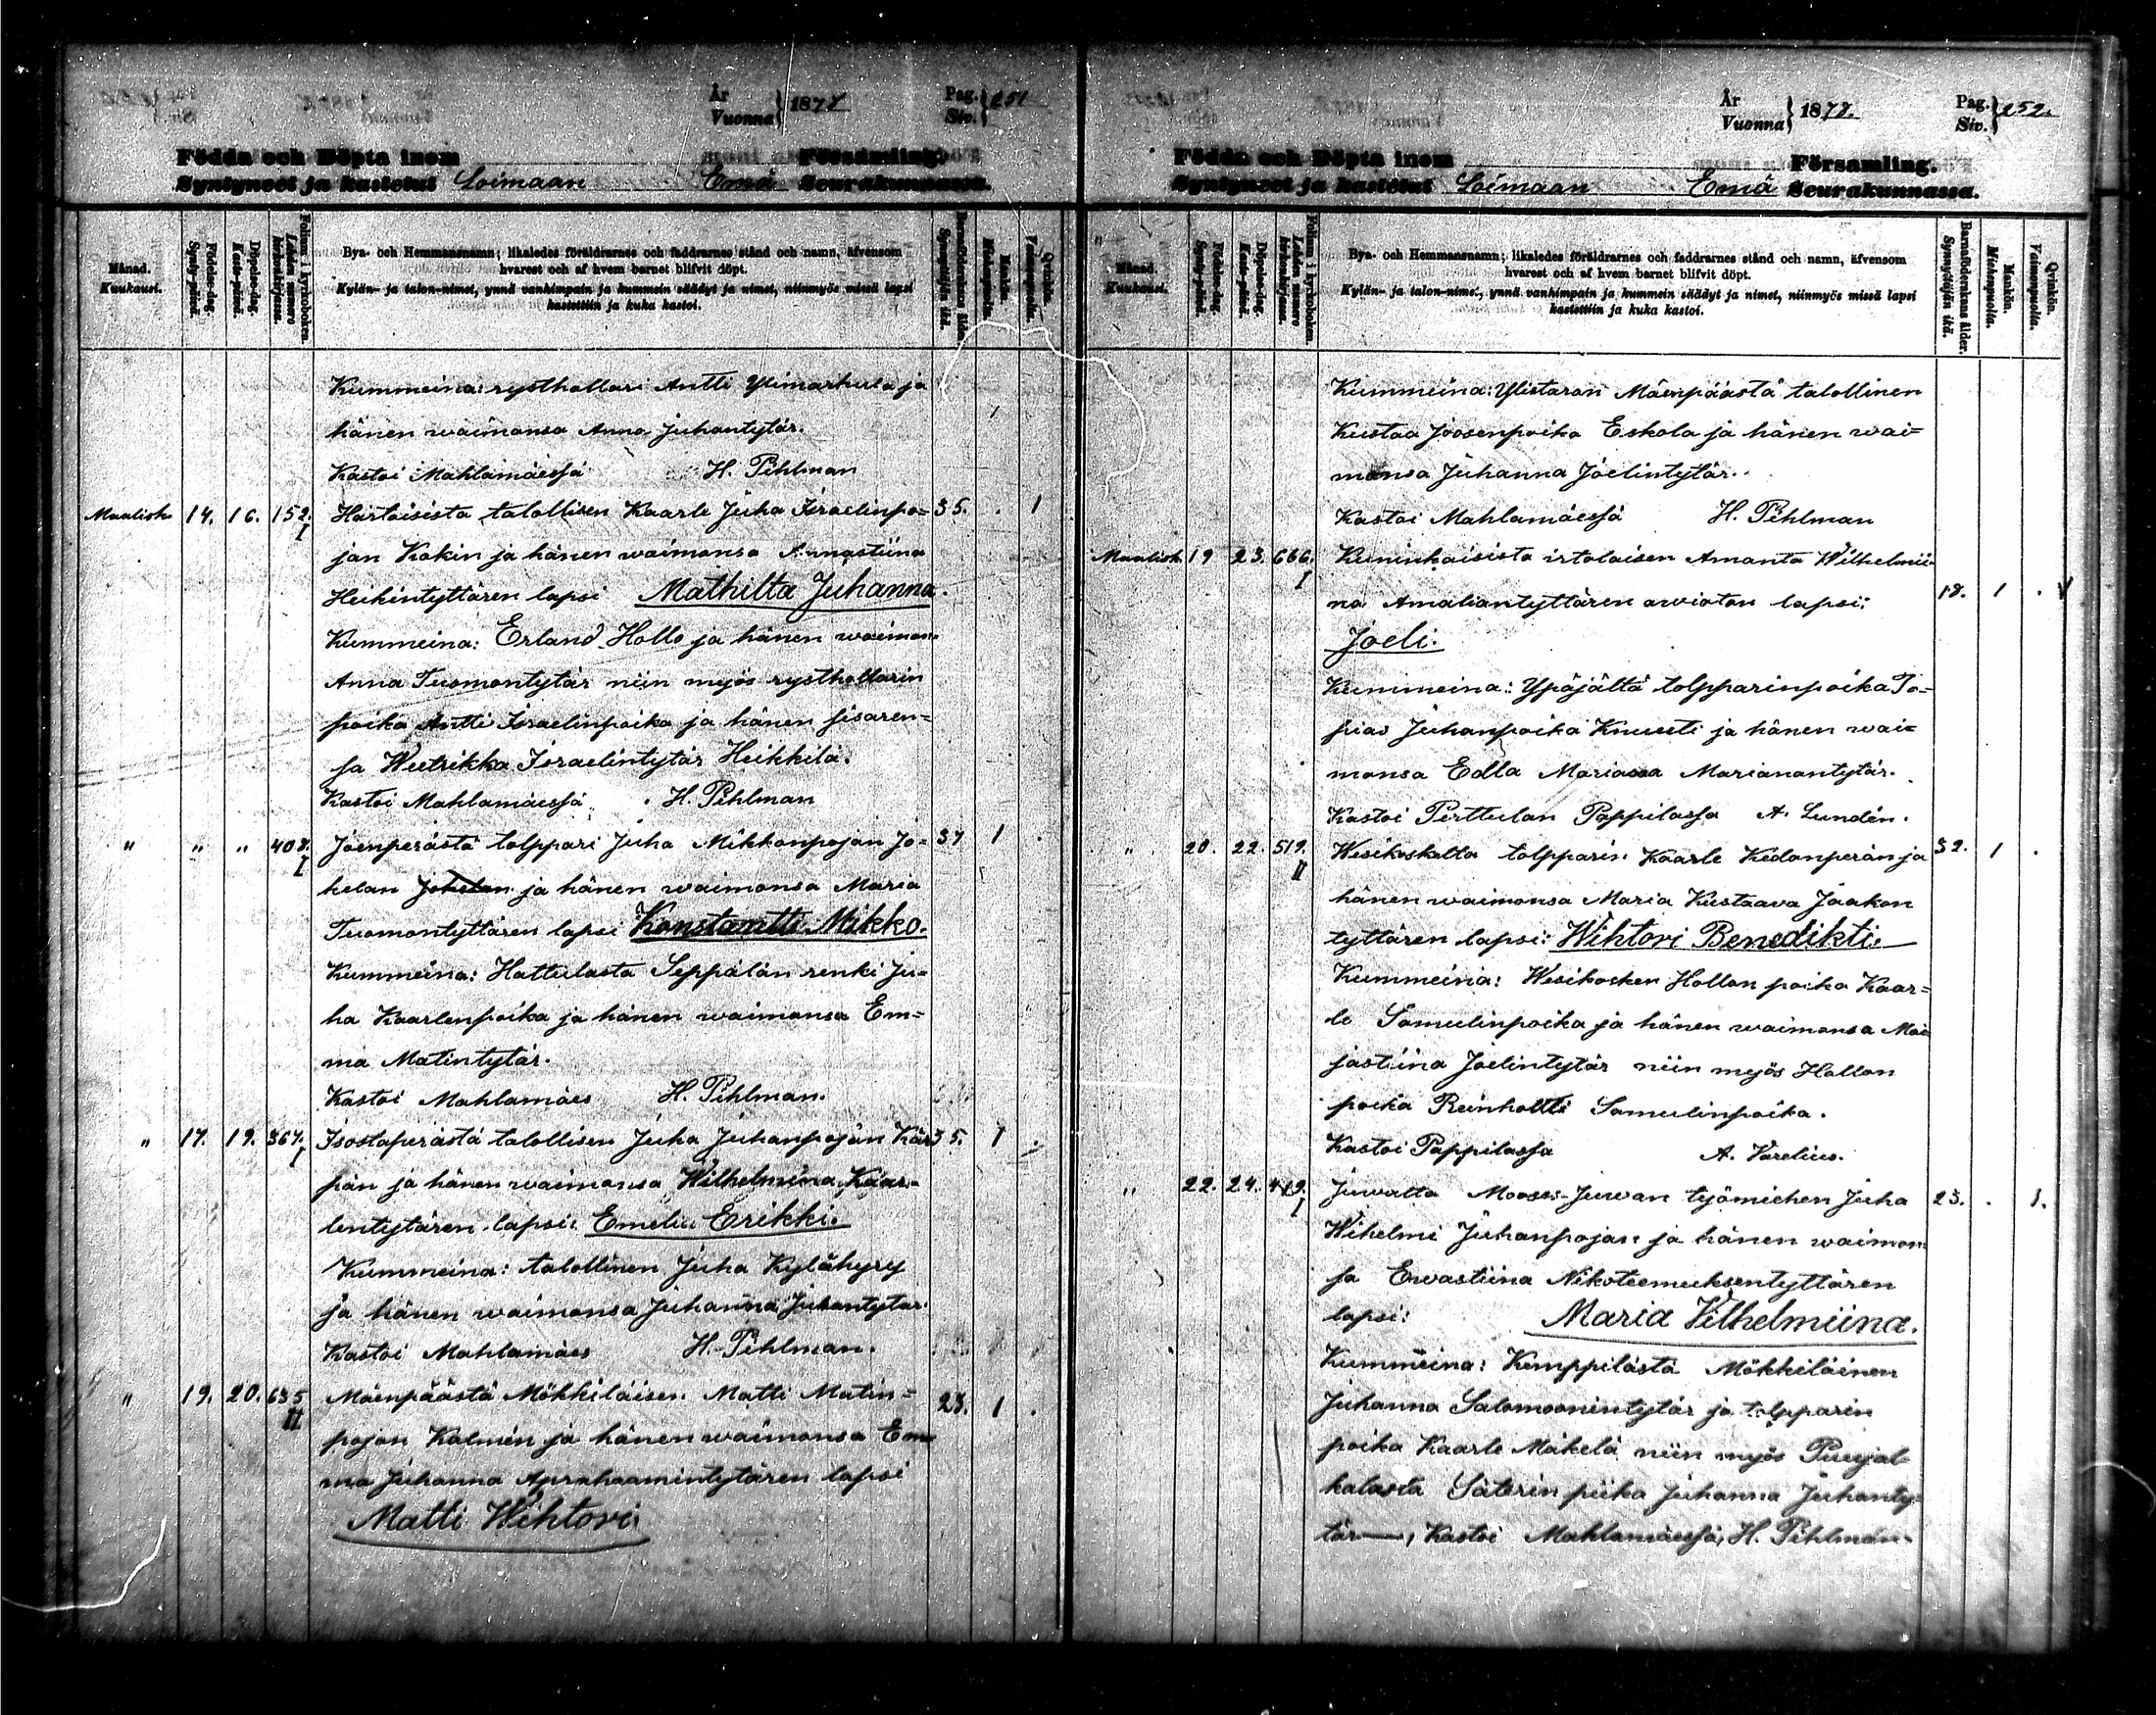 År
Vuonna } 1878
Pag.
Siv. } 251
Födda och Döpta inom Församling.
Syntyneet ja kastetut Loimaan Emä Seurakunnassa.
Månad.
Kuukausi.
Födelse-dag.
Synty-päivä.
Döpelse-dag.
Kaste-päivä.
Folium i kyrkoboken.
Lehden numero kirkonkirjassa.
Bya- och Hemmansnamn; likaledes föräldrarnes och faddrarnes stånd och namn, äfvensom
hvarest och af hvem barnet blifvit döpt.
Kylän- ja talon-nimet, ynnä vanhimpain ja kummein säädyt ja nimet, niinmyös missä lapsi
kastettiin ja kuka kastoi.
Barnaföderskans ålder.
Synnyttäjän ikä.
Mankön.
Miehenpuolia.
Qvinkön.
Vaimonpuolia.
Kummeina: rysthollari Antti Ylimarkula ja
hänen waimonsa Anna Juhantytär.
Kastoi Mahlamäessä H. Pihlman
Maalisk. 14. 16. 152. I Hartoisista talollisen Kaarle Juha Israelinpo= 35. . 1
jan Kokin ja hänen waimonsa Annastiina
Heikintyttären lapsi Mathilta Juhanna.
Kummeina: Erland Hollo ja hänen waimon=
Anna Tuomontytär niin myös rysthollarin
poika Antti Israelinpoika ja hänen sisaren=
sa Weetrikka Israelintytär Heikkilä.
Kastoi Mahlamäessä H. Pihlman
" " " 408. I Joenperästä tolppari Juha Mikkonpojan Jo= 37 1
kelan Jokelan ja hänen waimonsa Maria
Tuomontyttären lapsi Konstantti Mikko.
Kummeina: Hattulasta Seppälän renki Ju=
ha Kaarlenpoika ja hänen waimonsa Em=
ma Matintytär.
Kastoi Mahlamäes H. Pihlman.
" 17. 19. 367. I Isostaperästä talollisen Juha Juhanpojan Kär 35. 1 .
pän ja hänen waimonsa Wilhelmina Kaar=
lentytären lapsi: Emeli Erikki.
Kummeina: talollinen Juha Kylähyry
ja hänen waimonsa Juhanna Juhantytär
Kastoi Mahlamäes H. Pihlman.
" 19. 20. 635 II Mäenpäästä Mökkiläisen Matti Matin= 28. 1 .
pojan Kalmin ja hänen waimonsa Em
ma Juhanna Aprahaamintytären lapsi
Matti Wihtori
År
Vuonna } 1878.
Pag.
Siv. } 252.
Födda och Döpta inom Församling.
Syntyneet ja kastetut Loimaan Emä Seurakunnassa.
Månad.
Kuukausi.
Födelse-dag.
Synty-päivä.
Döpelse-dag.
Kaste-päivä.
Folium i kyrkoboken.
Lehden numero kirkonkirjassa.
Bya- och Hemmansnamn; likaledes föräldrarnes och faddrarnes stånd och namn, äfvensom
hvarest och af hvem barnet blifvit döpt.
Kylän- ja talon-nimet, ynnä vanhimpain ja kummein säädyt ja nimet, niinmyös missä lapsi
kastettiin ja kuka kastoi.
Barnaföderskans ålder.
Synnyttäjän ikä.
Mankön.
Miehenpuolia.
Qvinkön.
Vaimonpuolia.
Kummeina: Ylistaron Mäenpäästä talollinen
Kustaa Joosenpoika Eskola ja hänen wai=
monsa Juhanna Joelintytär.
Kastoi Mahlamäessä H. Pihlman
Maalisk. 19 23. 666. I Kuninkaisista irtolaisen Amanta Wilhelmii=
na Amaliantyttären awioton lapsi: 18. 1 . V
Joeli.
Kummeina: Ypäjältä tolpparinpoika To=
pias Juhanpoika Knuuti ja hänen wai=
monsa Edla Mariaa Marianantytär.
Kastoi Perttulan Pappilassa A. Lundén.
" 20. 22. 519. II Wesikoskelta tolpparin Kaarle Kedonperän ja 32. 1 .
hänen waimonsa Maria Kustaava Jaakon
tyttären lapsi: Wihtori Benedikti.
Kummeina: Wesikosken Hollon poika Kaar=
le Samulinpoika ja hänen waimonsa Mai
jastiina Joelintytär niin myös Hollon
poika Reinholtti Samulinpoika.
Kastoi Pappilassa A. Varelius.
" 22. 24. 419. I Juwalta Moosi-Juwan työmiehen Juha 23. . 1.
Wihelmi Juhanpojan ja hänen waimon
sa Ewastiina Nikoteemuksentyttären
lapsi: Maria Vilhelmiina.
Kummeina: Kemppilästä Mökkiläinen
Juhanna Salomoonintytär ja tolpparin
poika Kaarle Mäkelä niin myös Puujal
kalasta Säterin piika Juhanna Juhanty=
tär—, Kastoi Mahlamäessä, H. Pihlman.